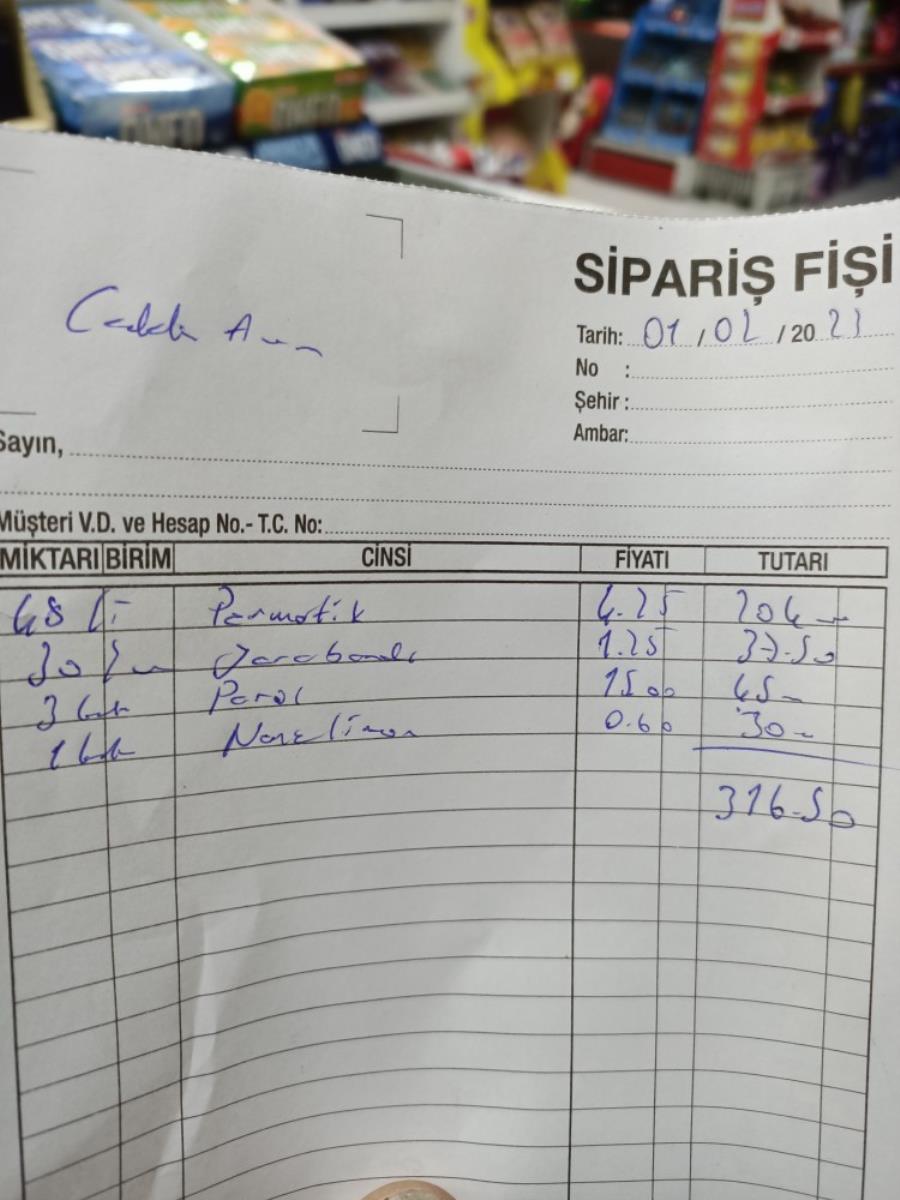 ÜNED
SİPARİŞ FİŞİ
Tarih: 01 / 02 / 20 23
No :
Şehir :
Ambar:
Sayın,
Müşteri V.D. ve Hesap No.- T.C. No:
MİKTARI BİRİM CİNSİ FİYATI TUTARI
48 Permatik 4.25 204
30 Yarabandı 1.25 37.50
3 Parol 15 00 45
1 Nane limon 0.60 30
316.50